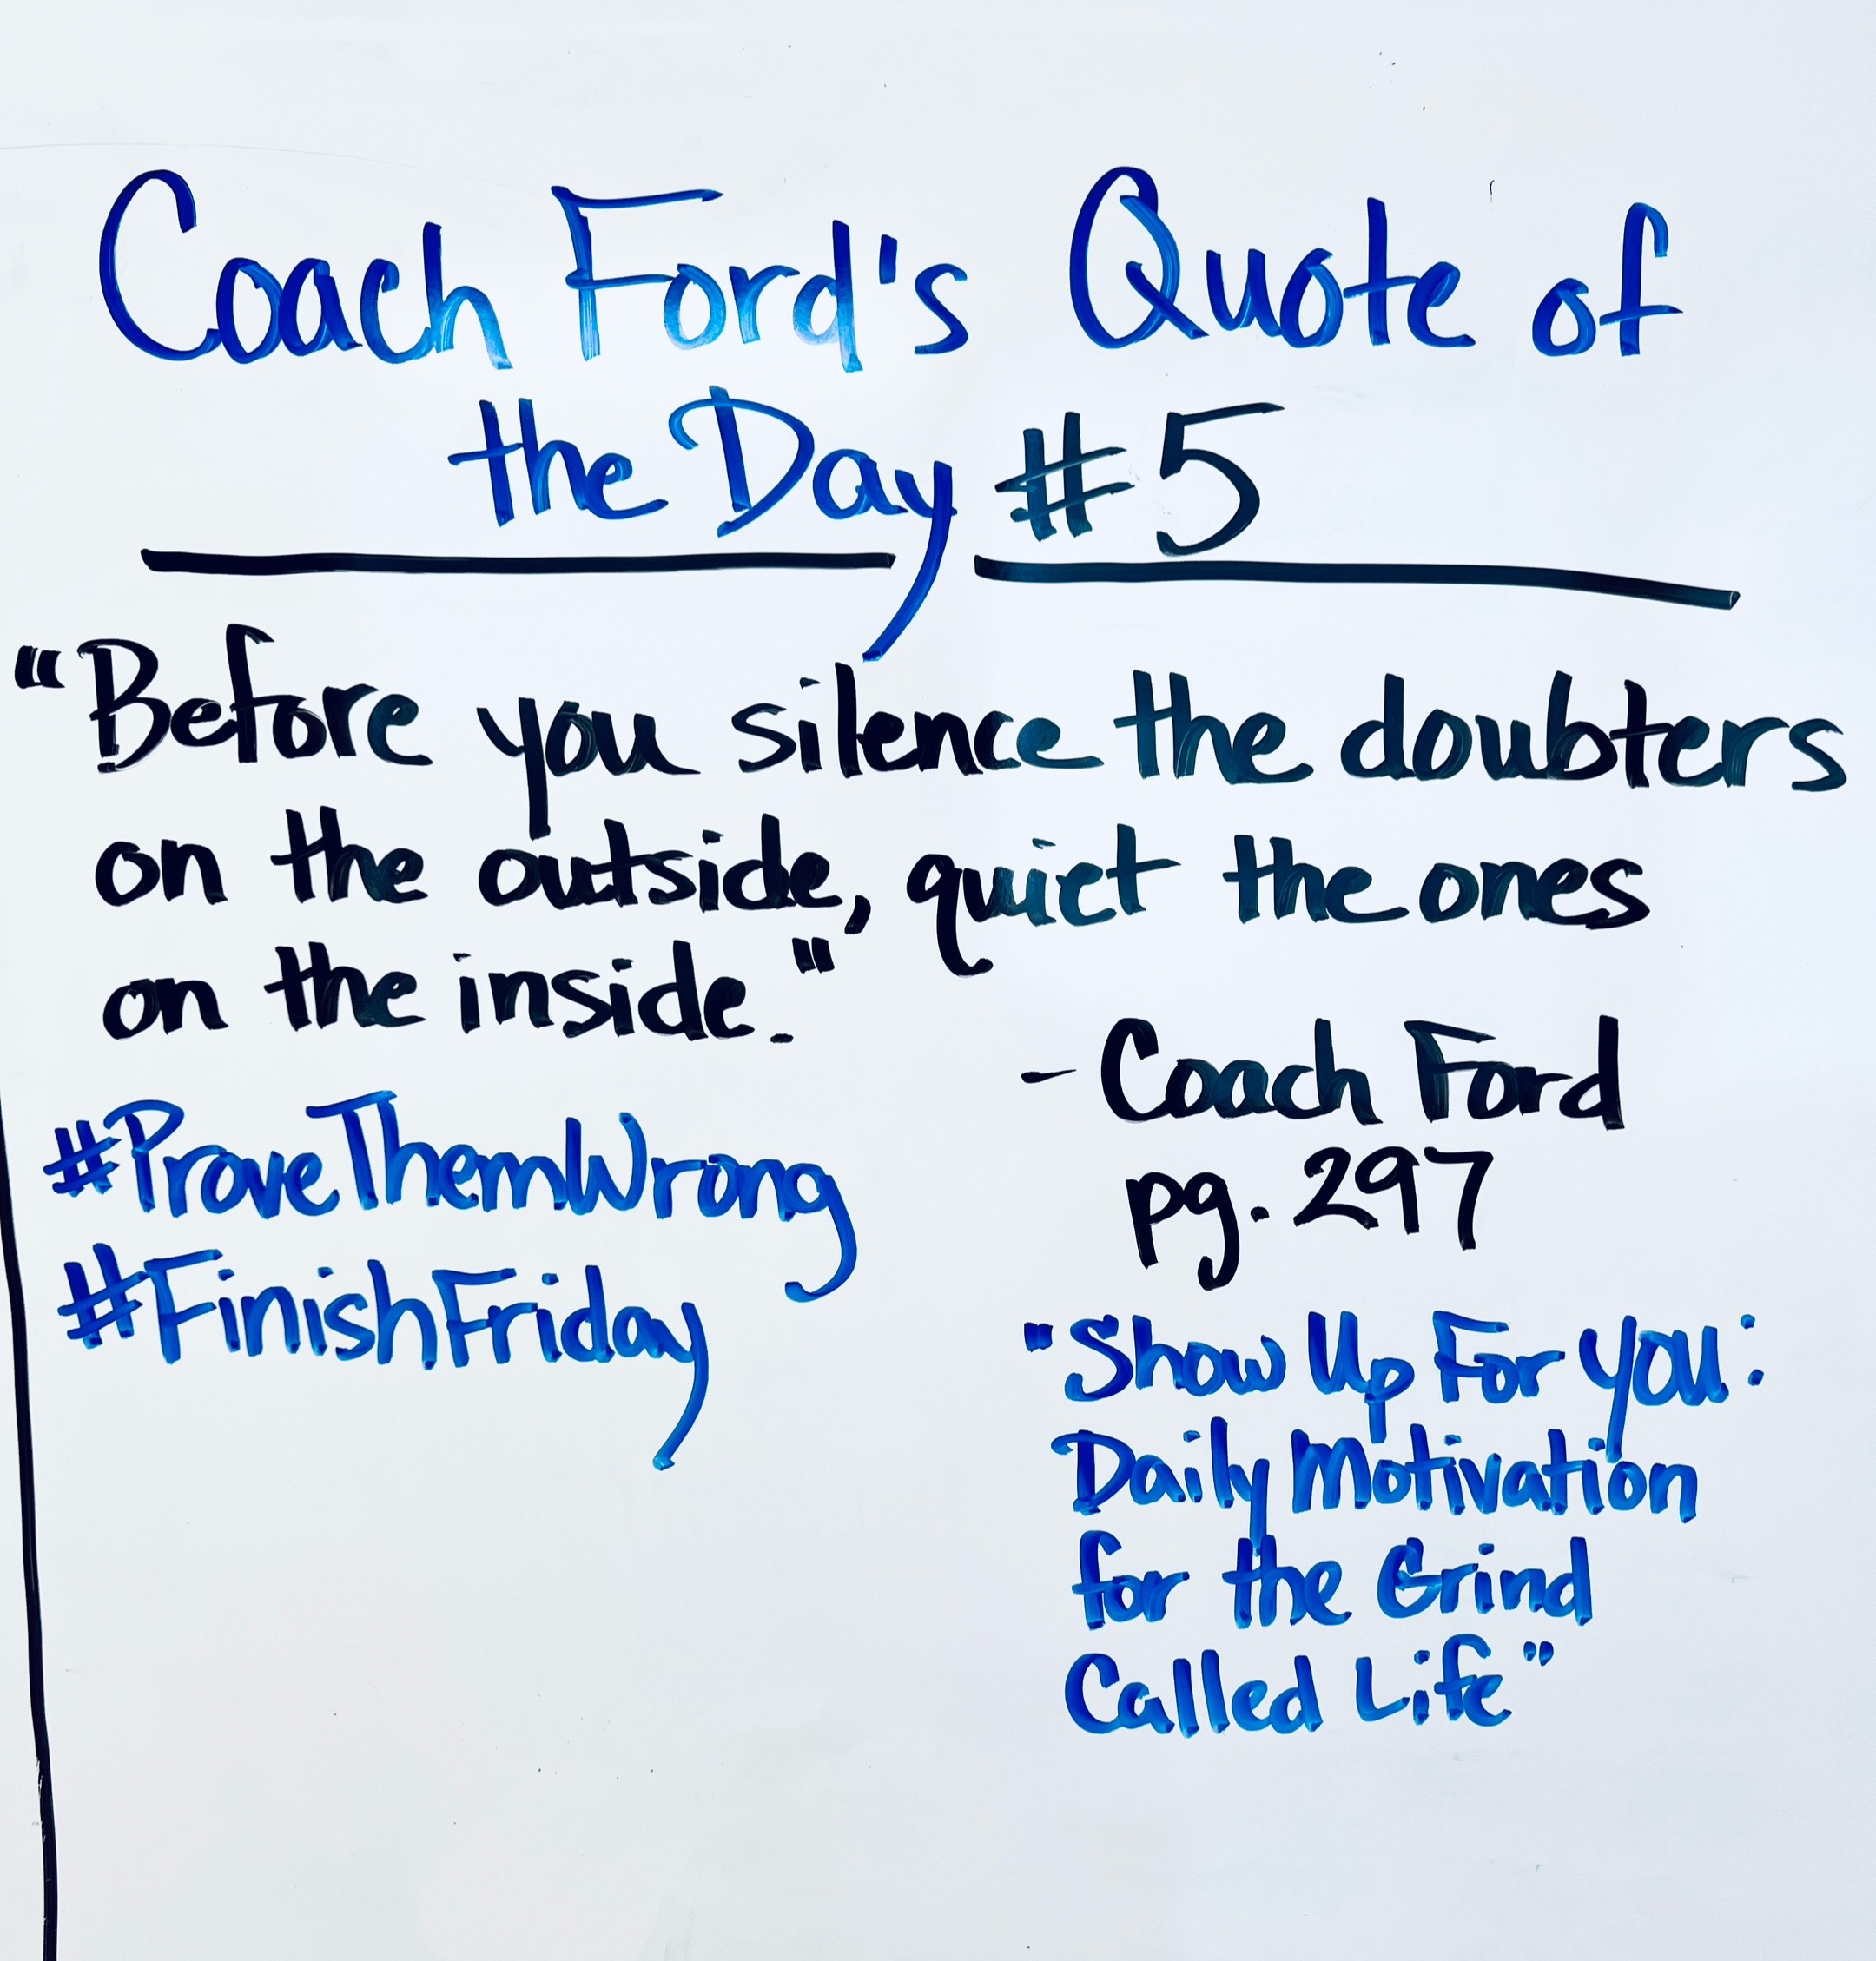 Coach Ford's Quote of
the Day #5
"Before you silence the doubters
on the outside, quiet the ones
on the inside."
- Coach Ford
pg. 297
#ProveThemWrong
#FinishFriday
"Show Up For You:
Daily Motivation
for the Grind
Called Life"